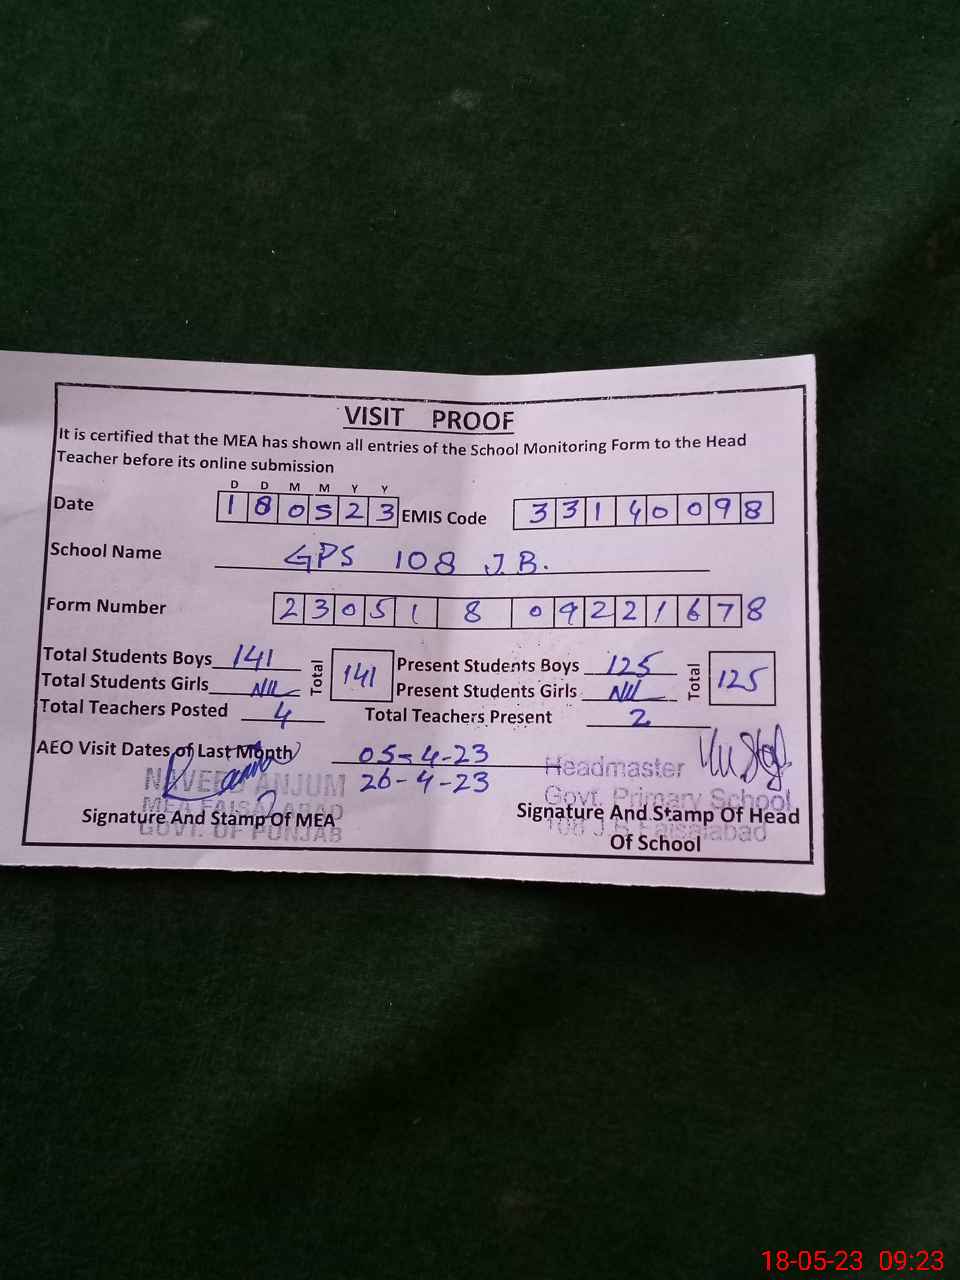 VISIT PROOF
It is certified that the MEA has shown all entries of the School Monitoring Form to the Head
Teacher before its online submission
D D M M Y Y
Date 1 8 0 5 2 3 EMIS Code 3 3 1 4 0 0 9 8
School Name GPS 108 J.B.
Form Number 2 3 0 5 1 8 0 9 2 2 1 6 7 8
Total Students Boys 141 Total 141 Present Students Boys 125 Total 125
Total Students Girls Nil Present Students Girls Nil
Total Teachers Posted 4 Total Teachers Present 2
AEO Visit Dates of Last Month 05-4-23
26-4-23
NAVEED ANJUM
MEA FAISALABAD
GOVT. OF PUNJAB
Signature And Stamp Of MEA
Headmaster
Govt. Primary School
108 J.B Faisalabad
Signature And Stamp Of Head
Of School
18-05-23 09:23